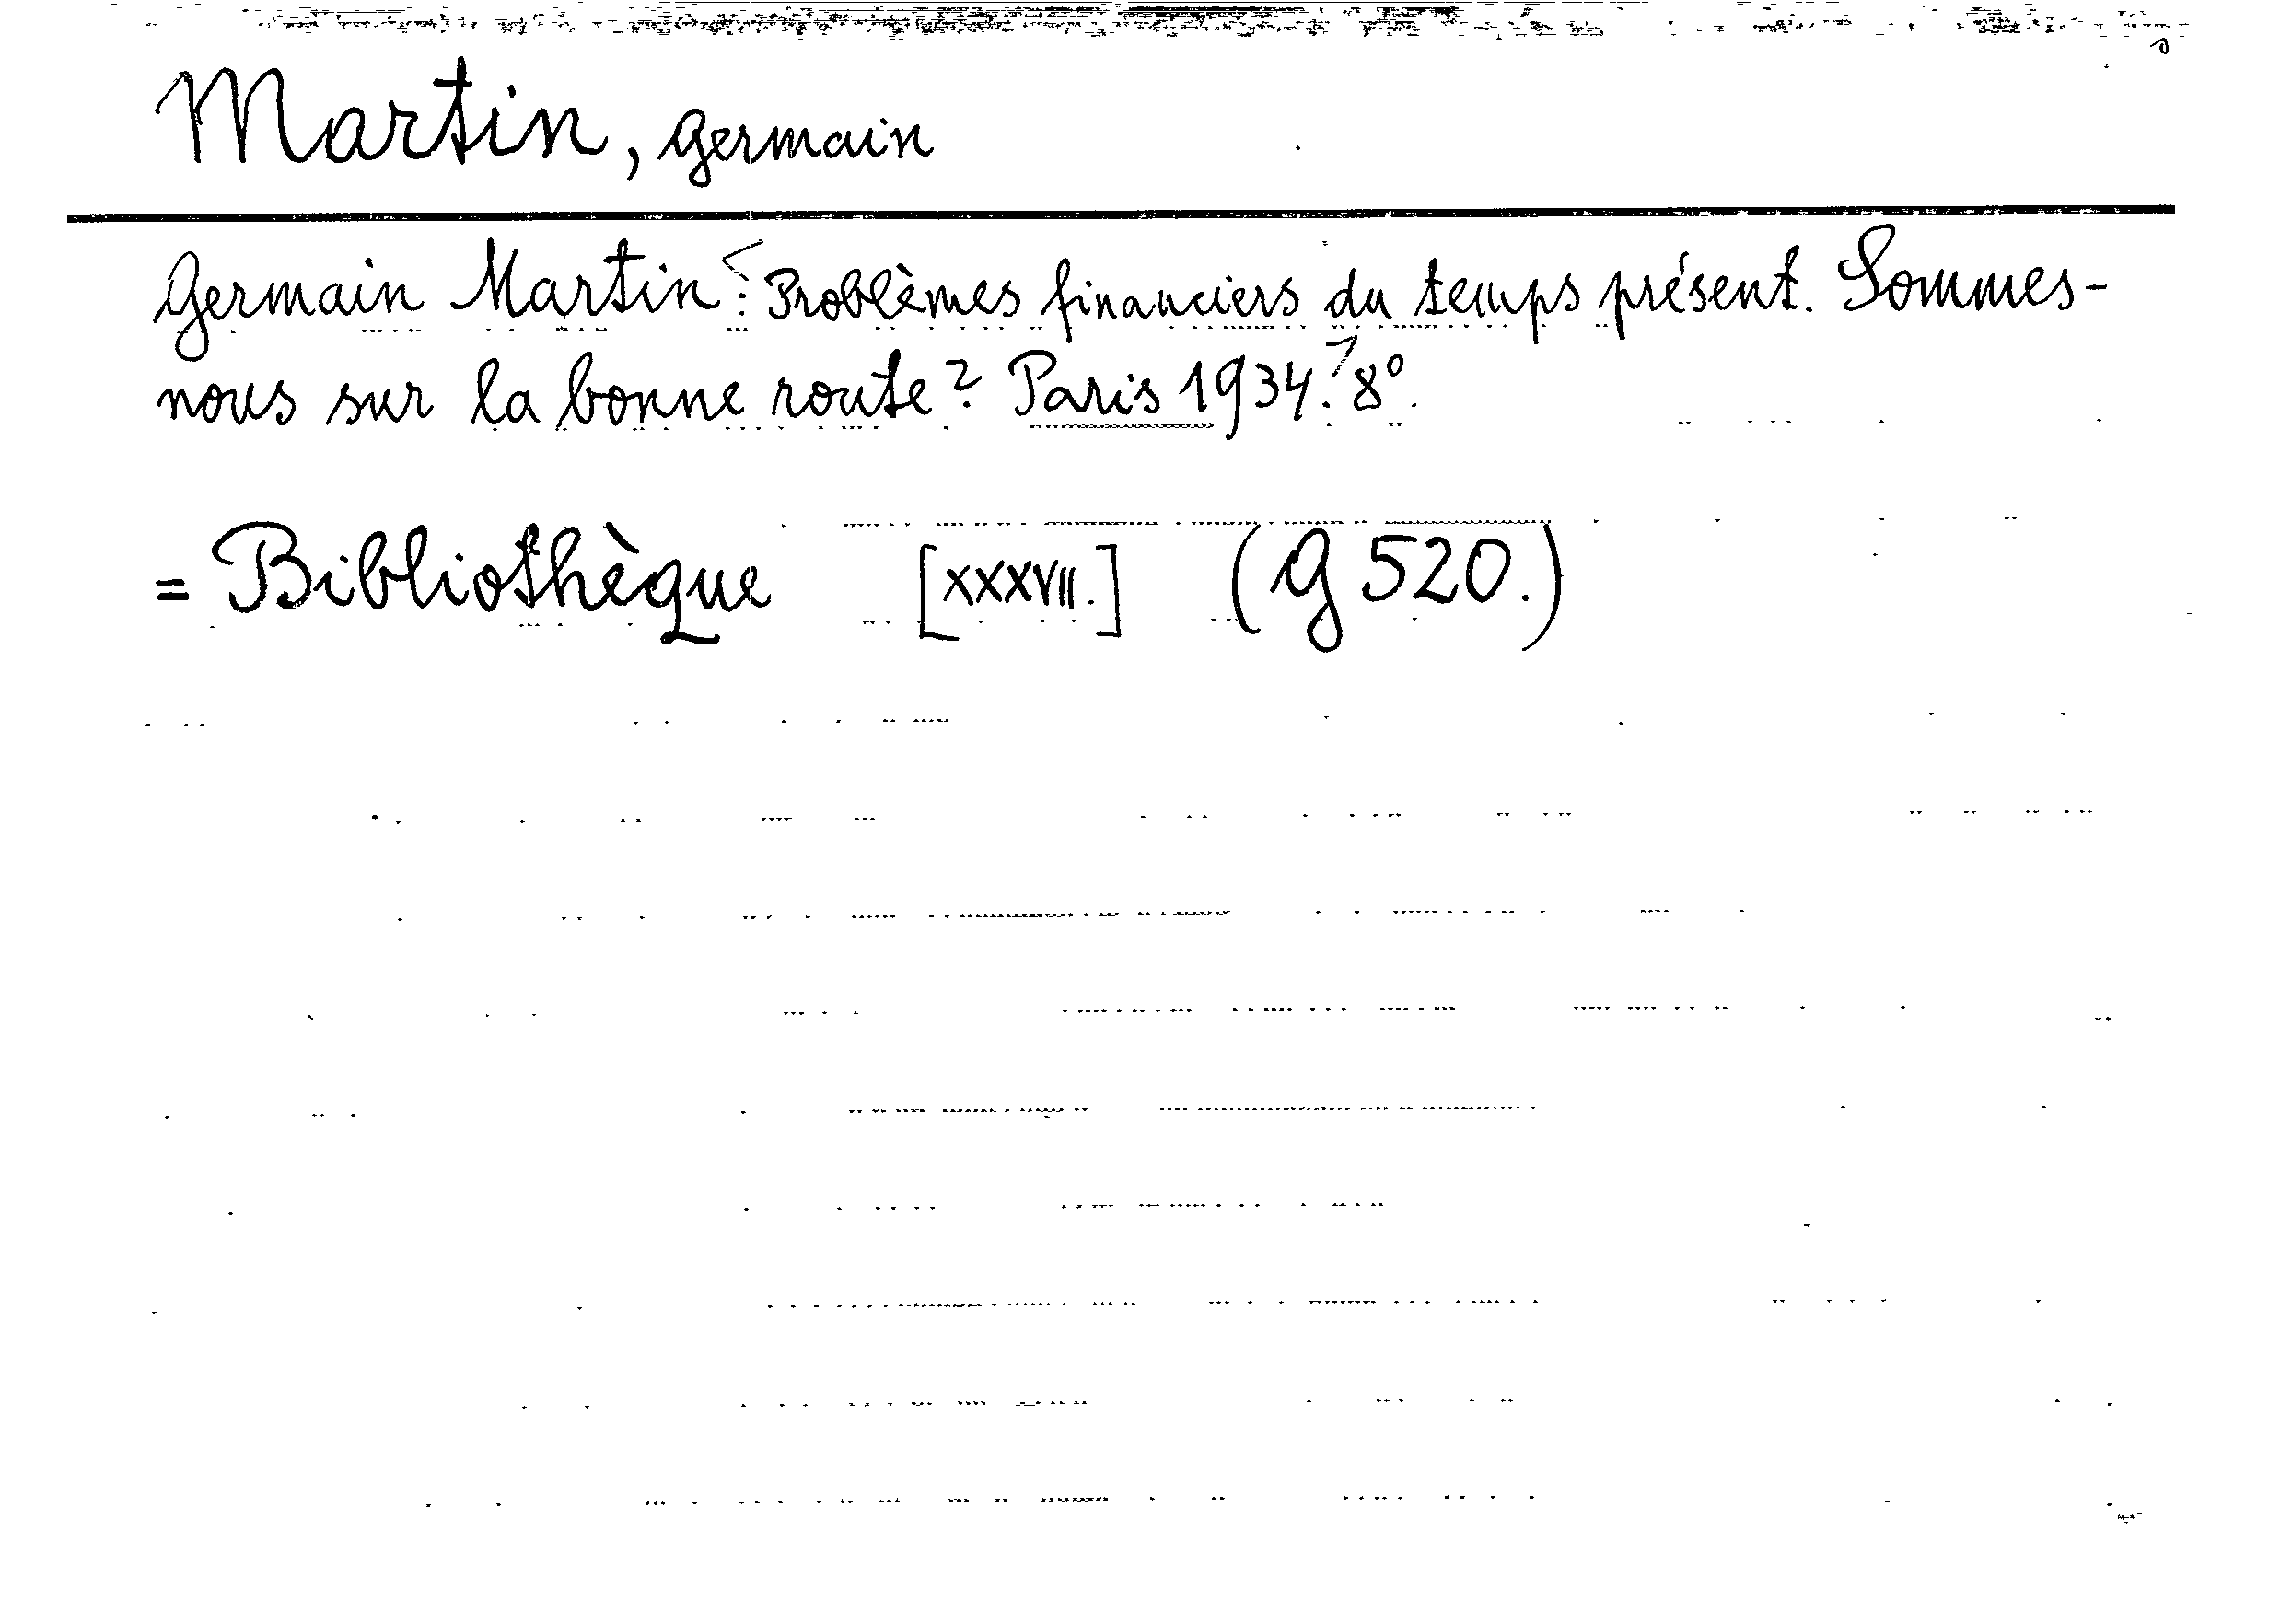 Martin, Germain
Germain Martin: Problèmes financiers du temps présent. Sommes-
nous sur la bonne route? Paris 1934. 8°.
= Bibliothèque [XXXVII.] (G 520.)